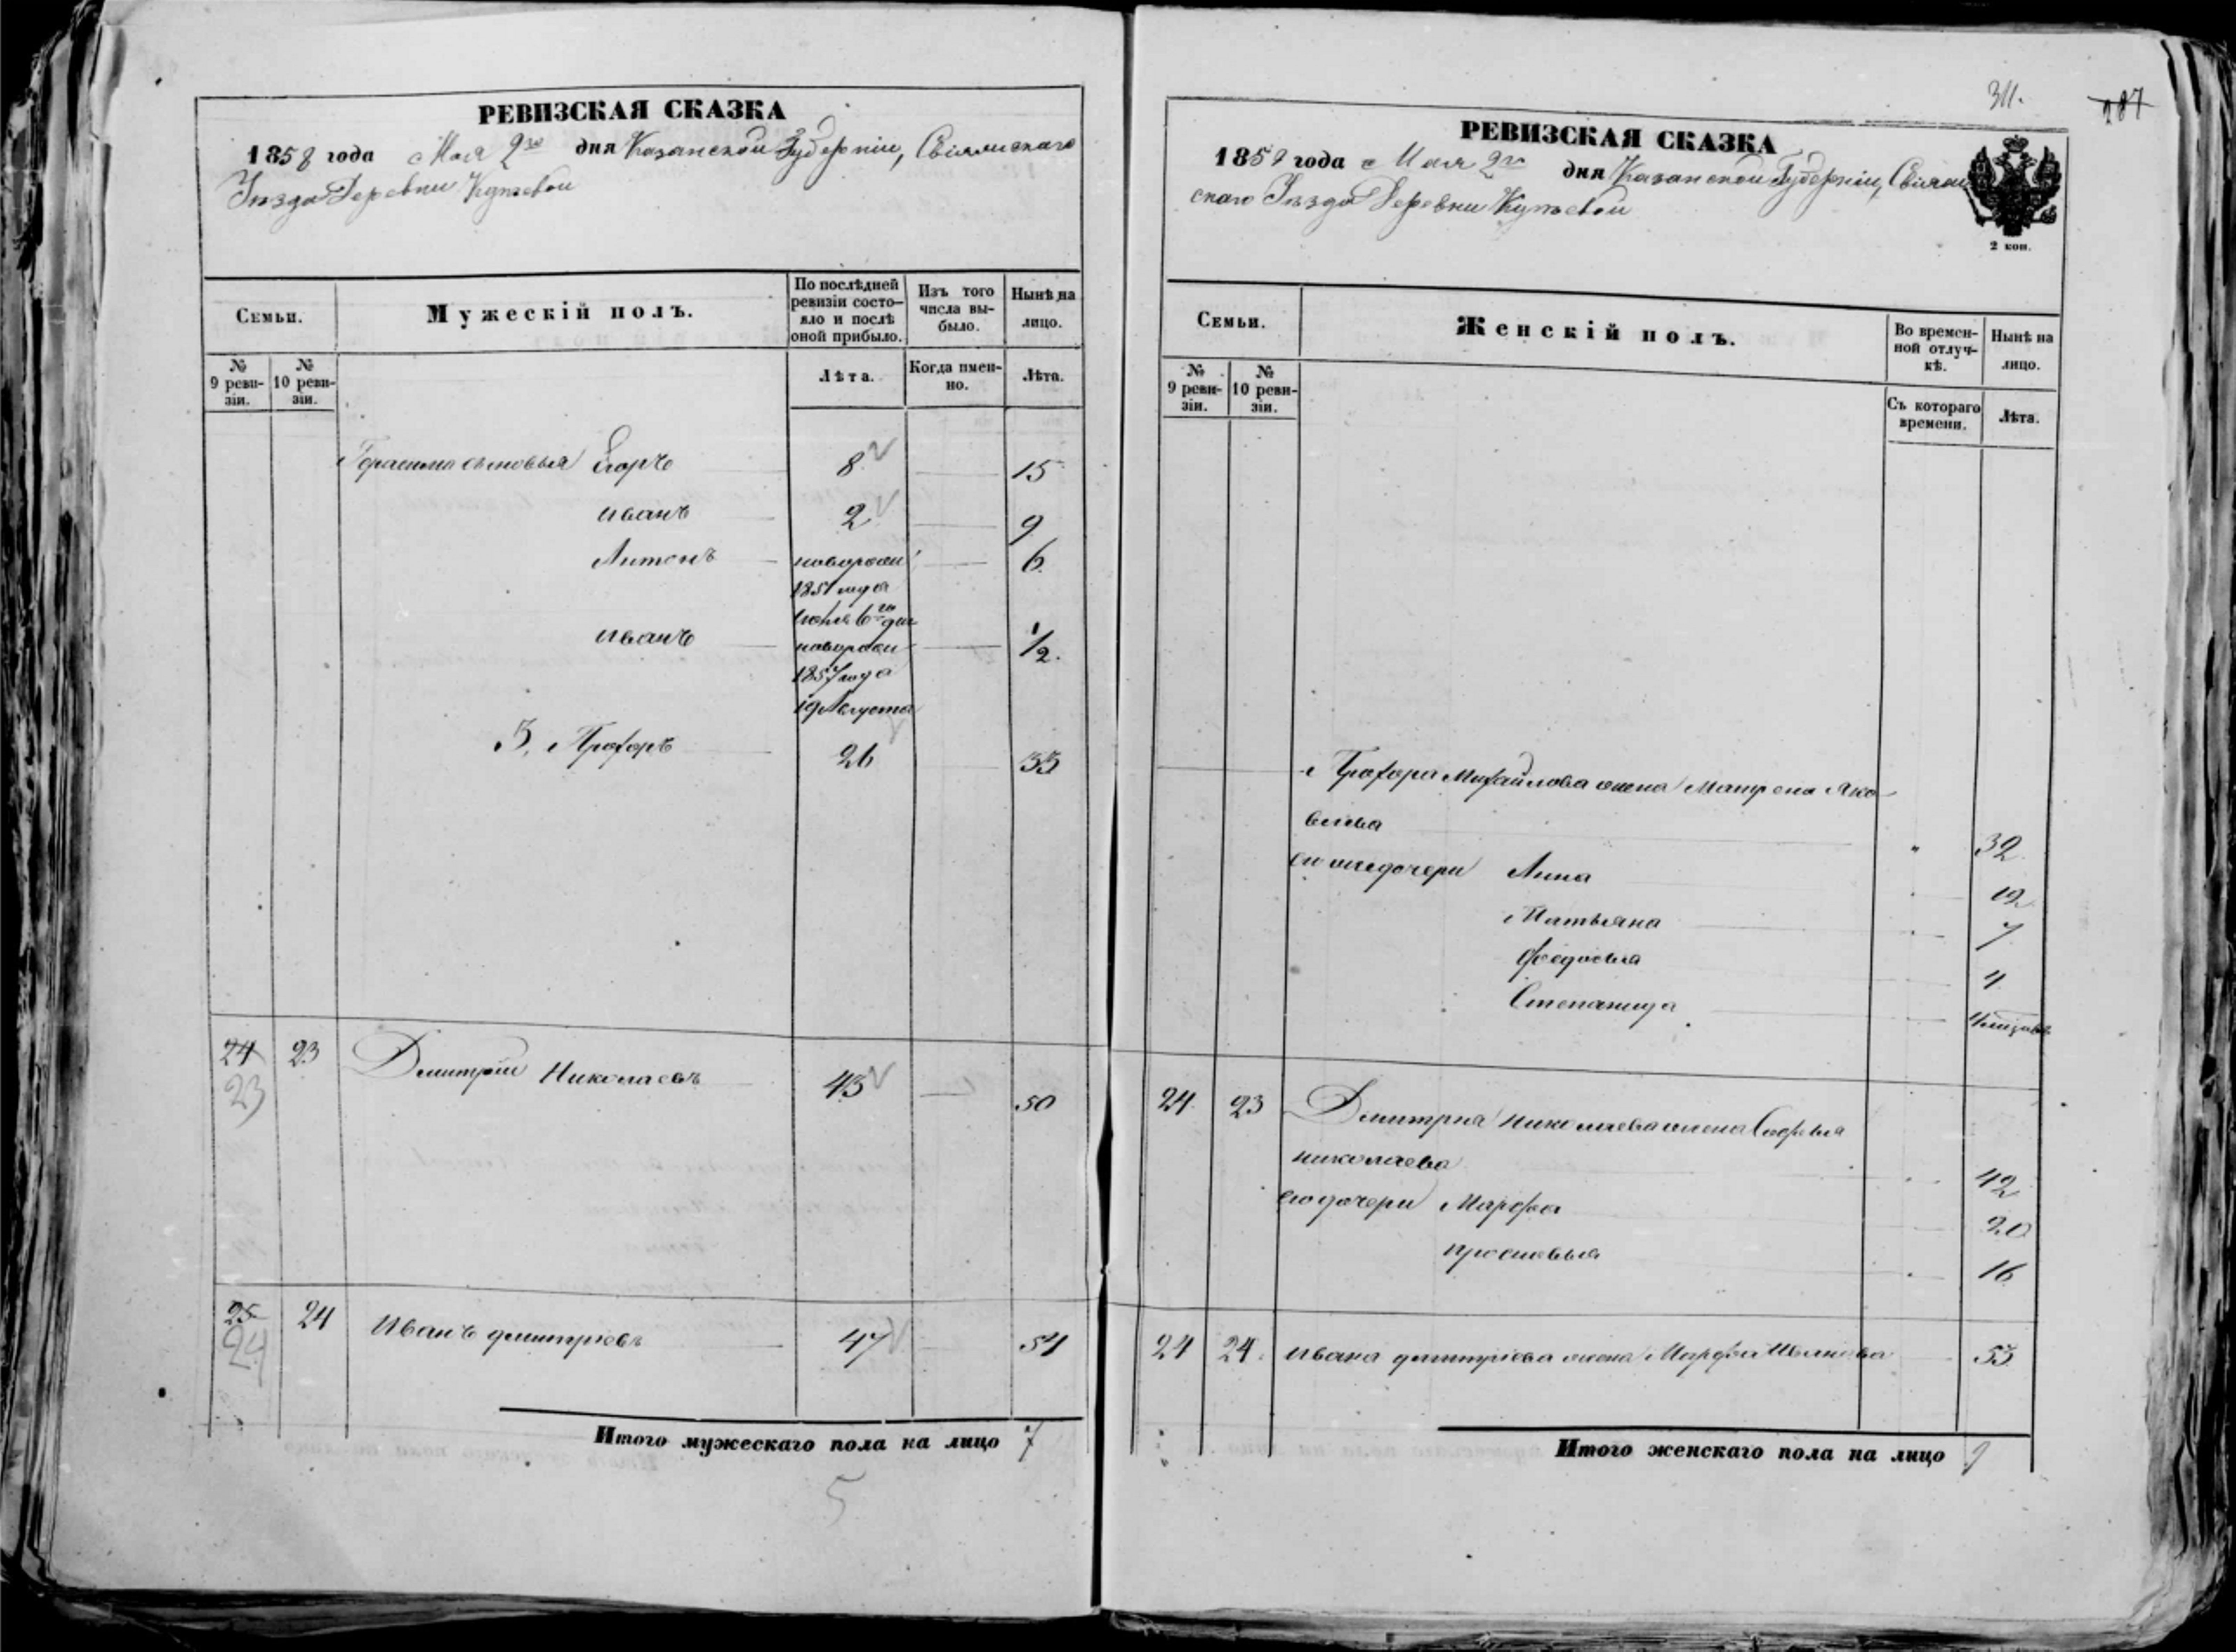 РЕВИЗСКАЯ СКАЗКА
1858 года Мая 2го дня Казанской Губерніи, Свіяжскаго
Уѣзда Деревни
Семьи.
Мужескій полъ.
По послѣдней ревизіи состояло и послѣ оной прибыло.
Изъ того числа выбыло.
Нынѣ на лицо.
№ 9 ревизіи.
№ 10 ревизіи.
Лѣта.
Когда именно.
Лѣта.
Герасима сыновья Егоръ 8 15
Иванъ 2 9
Антонъ новорожд 6
1851 года
6го дня
Иванъ новорожд 1/2.
1857 года
19 Августа
3, Прохоръ 26 33
24 23 Дмитрій Николаевъ 43 50
23
25 24 Иванъ Дмитріевъ 47 54
24
Итого мужескаго пола на лицо 7
5
311.
287
РЕВИЗСКАЯ СКАЗКА
1858 года Мая 2го дня Казанской Губерніи, Свіяж
скаго Уѣзда Деревни
2 коп.
Семьи.
Женскій полъ.
Во временной отлучкѣ.
Нынѣ на лицо.
№ 9 ревизіи.
№ 10 ревизіи.
Съ котораго времени.
Лѣта.
Прохора Михайлова жена Матрена Яко
влева 32
дочери Анна 12
Татьяна 7
Федосья 4
Степанида
24 23 Дмитрія Николаева жена Софья
Николаева 42
его дочери Марфа 20
Просковья 16
24 24. Ивана Дмитріева жена Марфа Иванова 53
Итого женскаго пола на лицо 9